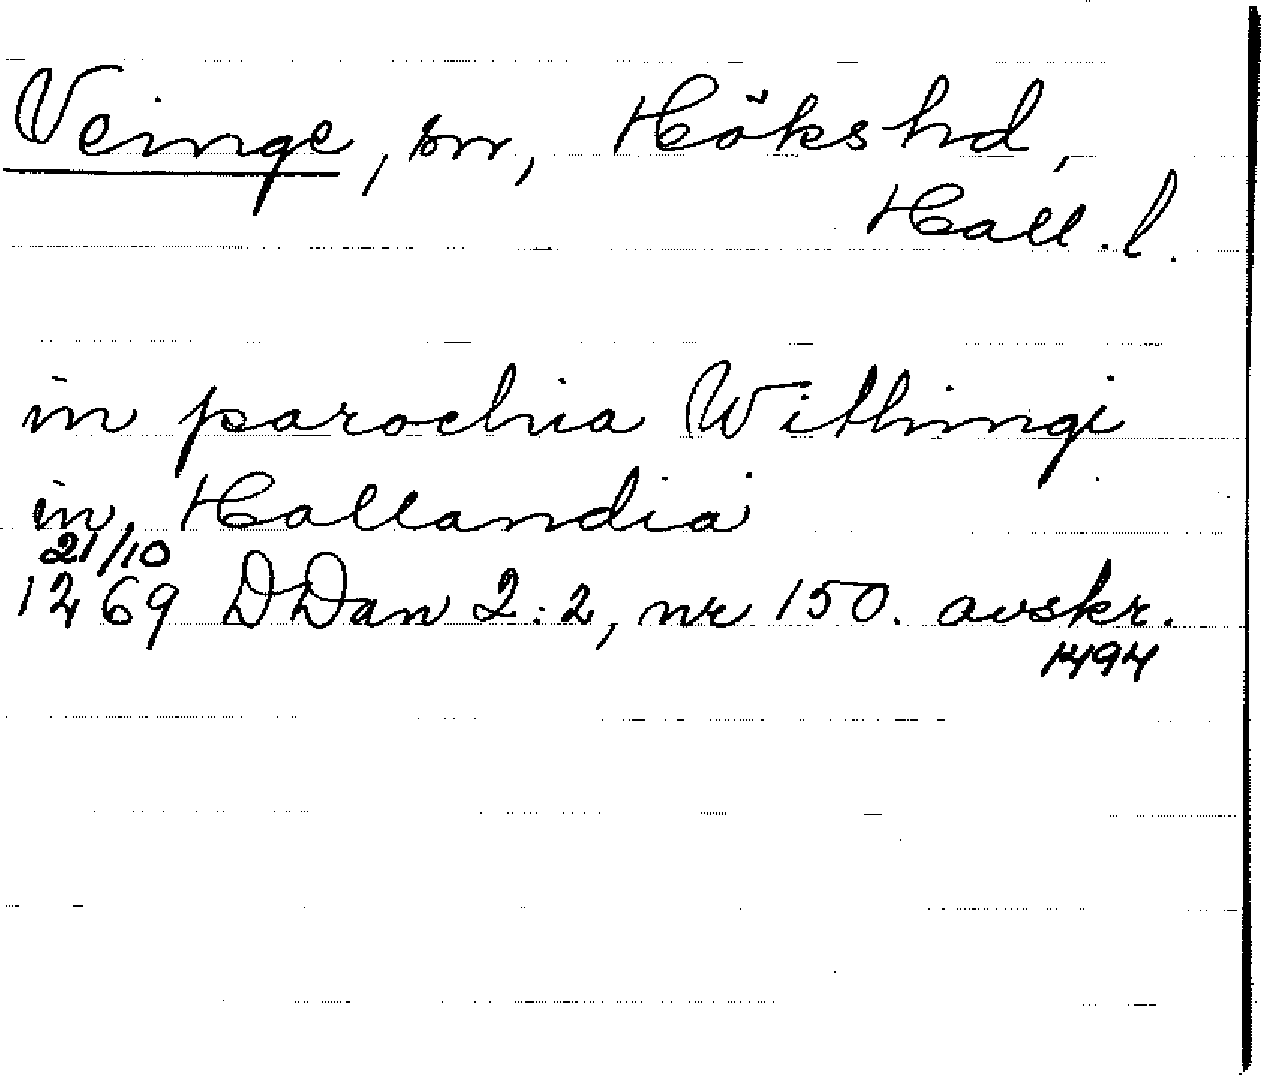 Veinge, sn, Höks hd,
Hall. l.
in parochia Withingi
in Hallandia
21/10
1269 DDan 2:2, nr 150. avskr.
1494